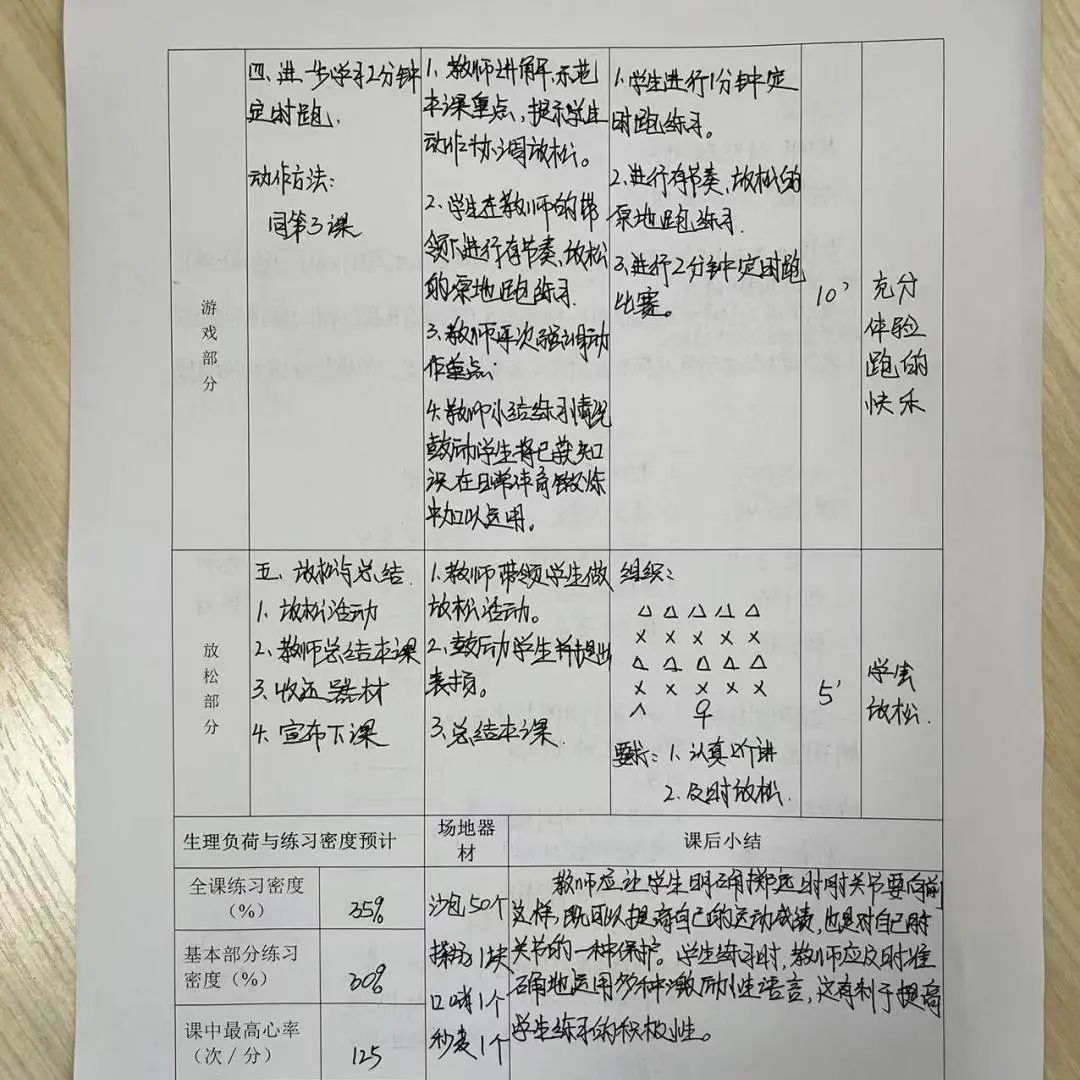 游戏部分
四、进一步学习2分钟
定时跑.
动作方法:
同第3课
1. 教师讲解、示范
本课重点、提示学生
动作协调放松。
2. 学生在教师的带
领下进行有节奏、放松
的原地跑练习.
3. 教师再次强调动
作重点;
4. 教师小结练习情况
鼓励学生将已获知
识在日常体育锻炼
中加以运用。
1. 学生进行1分钟定
时跑练习。
2. 进行有节奏、放松的
原地跑练习.
3. 进行2分钟定时跑
比赛。
10'
充分
体验
跑的
快乐
放松部分
五、放松与总结.
1. 放松活动
2. 教师总结本课
3. 收还器材
4. 宣布下课
1. 教师带领学生做
放松活动。
2. 鼓励学生并提出
表扬。
3. 总结本课
组织:
△ △ △ △ △
× × × × ×
△ △ △ △ △
× × × × ×
要求: 1. 认真听讲
2. 及时放松.
5'
学会
放松.
生理负荷与练习密度预计
场地器
材
课后小结
全课练习密度
(%)
35%
基本部分练习
密度(%)
30%
课中最高心率
(次/分)
125
沙包50个
操场1块
口哨1个
秒表1个
教师应让学生明确掷远时肘关节要向前
这样,既可以提高自己的运动成绩,也是对自己肘
关节的一种保护。学生练习时,教师应及时准
确地运用多种激励性语言,这有利于提高
学生练习的积极性。